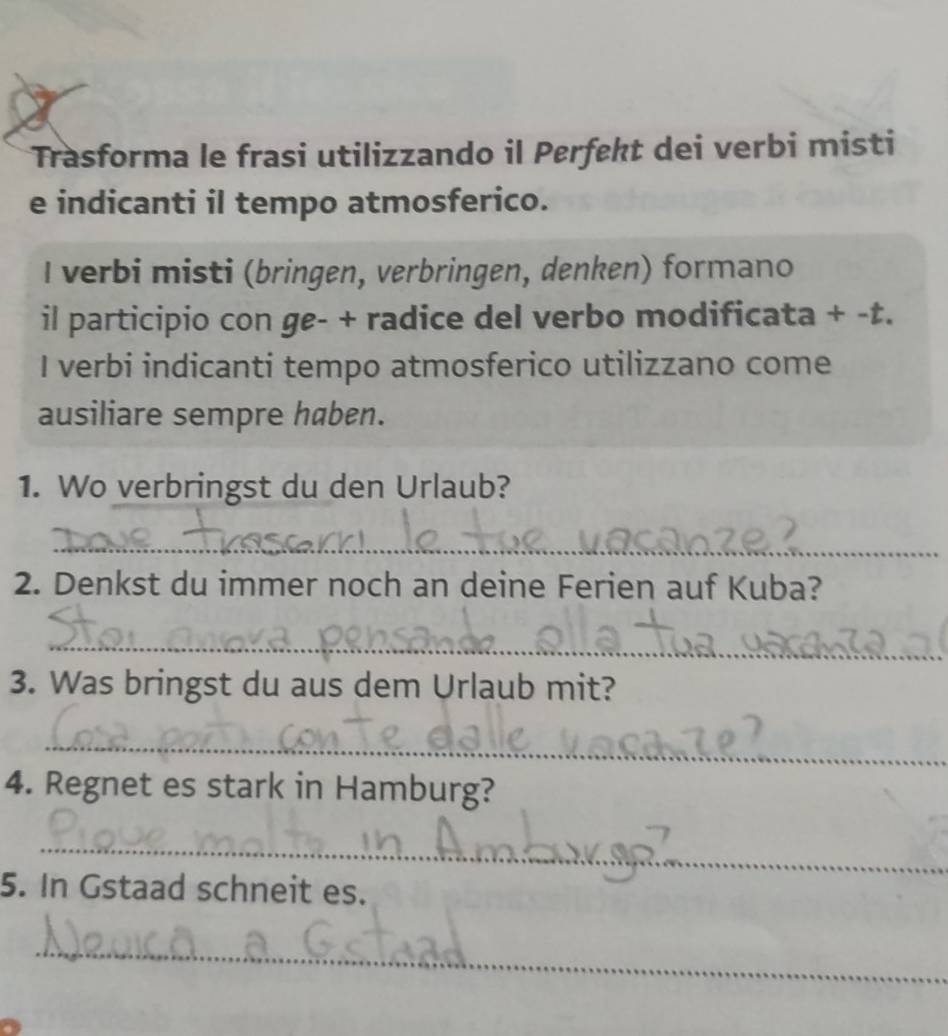 7
Trasforma le frasi utilizzando il Perfekt dei verbi misti
e indicanti il tempo atmosferico.
I verbi misti (bringen, verbringen, denken) formano
il participio con ge- + radice del verbo modificata + -t.
I verbi indicanti tempo atmosferico utilizzano come
ausiliare sempre haben.
1. Wo verbringst du den Urlaub?
Dove trascorri le tue vacanze?
2. Denkst du immer noch an deine Ferien auf Kuba?
Stai ancora pensando alla tua vacanza a
3. Was bringst du aus dem Urlaub mit?
Cosa porti con te dalle vacanze?
4. Regnet es stark in Hamburg?
Piove molto in Amburgo?
5. In Gstaad schneit es.
Nevica a Gstaad